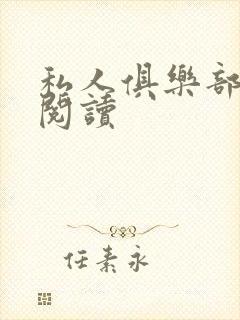 私人俱樂部
閱讀
任素永